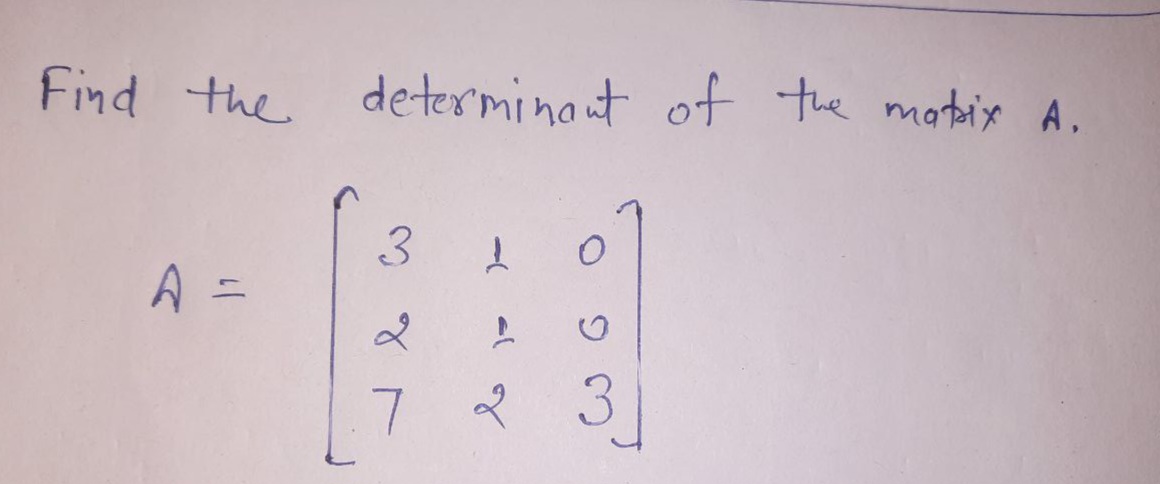 Find the determinant of the matrix A.
3 1 0
A = 2 1 0
7 2 3